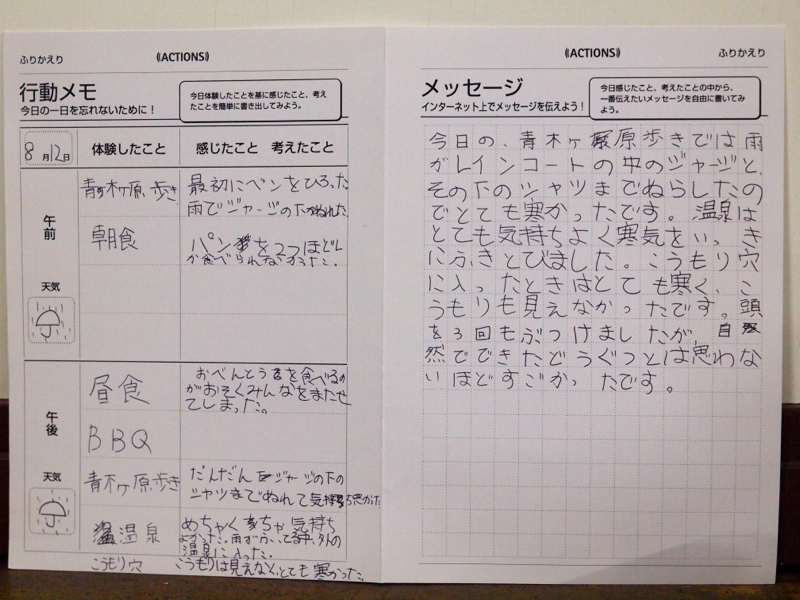 ふりかえり
《ACTIONS》
行動メモ
今日の一日を忘れないために！
今日体験したことを基に感じたこと、考え
たことを簡単に書き出してみよう。
8月12日
体験したこと
感じたこと 考えたこと
午前
天気
青木ヶ原歩き
最初にペンをひろった
雨でジャージの下がぬれた
朝食
パンを2つほどし
か食べられなかった。
午後
天気
昼食
おべんとうを食べるの
がおそくみんなをまたせ
てしまった。
BBQ
青木ヶ原歩き
だんだんジャージの下の
シャツまでぬれて気持ち悪かった
温泉
めちゃくちゃ気持ち
よかった。雨がふってる中、外の
温泉に入った。
こうもり穴
こうもりは見えなく、とても寒かった。
《ACTIONS》
ふりかえり
メッセージ
インターネット上でメッセージを伝えよう！
今日感じたこと、考えたことの中から、
一番伝えたいメッセージを自由に書いてみ
よう。
今日の、青木ヶ原歩きでは雨
がレインコートの中のジャージと、
その下のシャツまでぬらしたの
でとても寒かったです。温泉は
とても気持ちよく寒気をいっき
にふきとびました。こうもり穴
に入ったときはとても寒く、こ
うもりも見えなかったです。頭
を3回もぶつけましたが、自
然でできたどうくつとは思わな
いほどすごかったです。